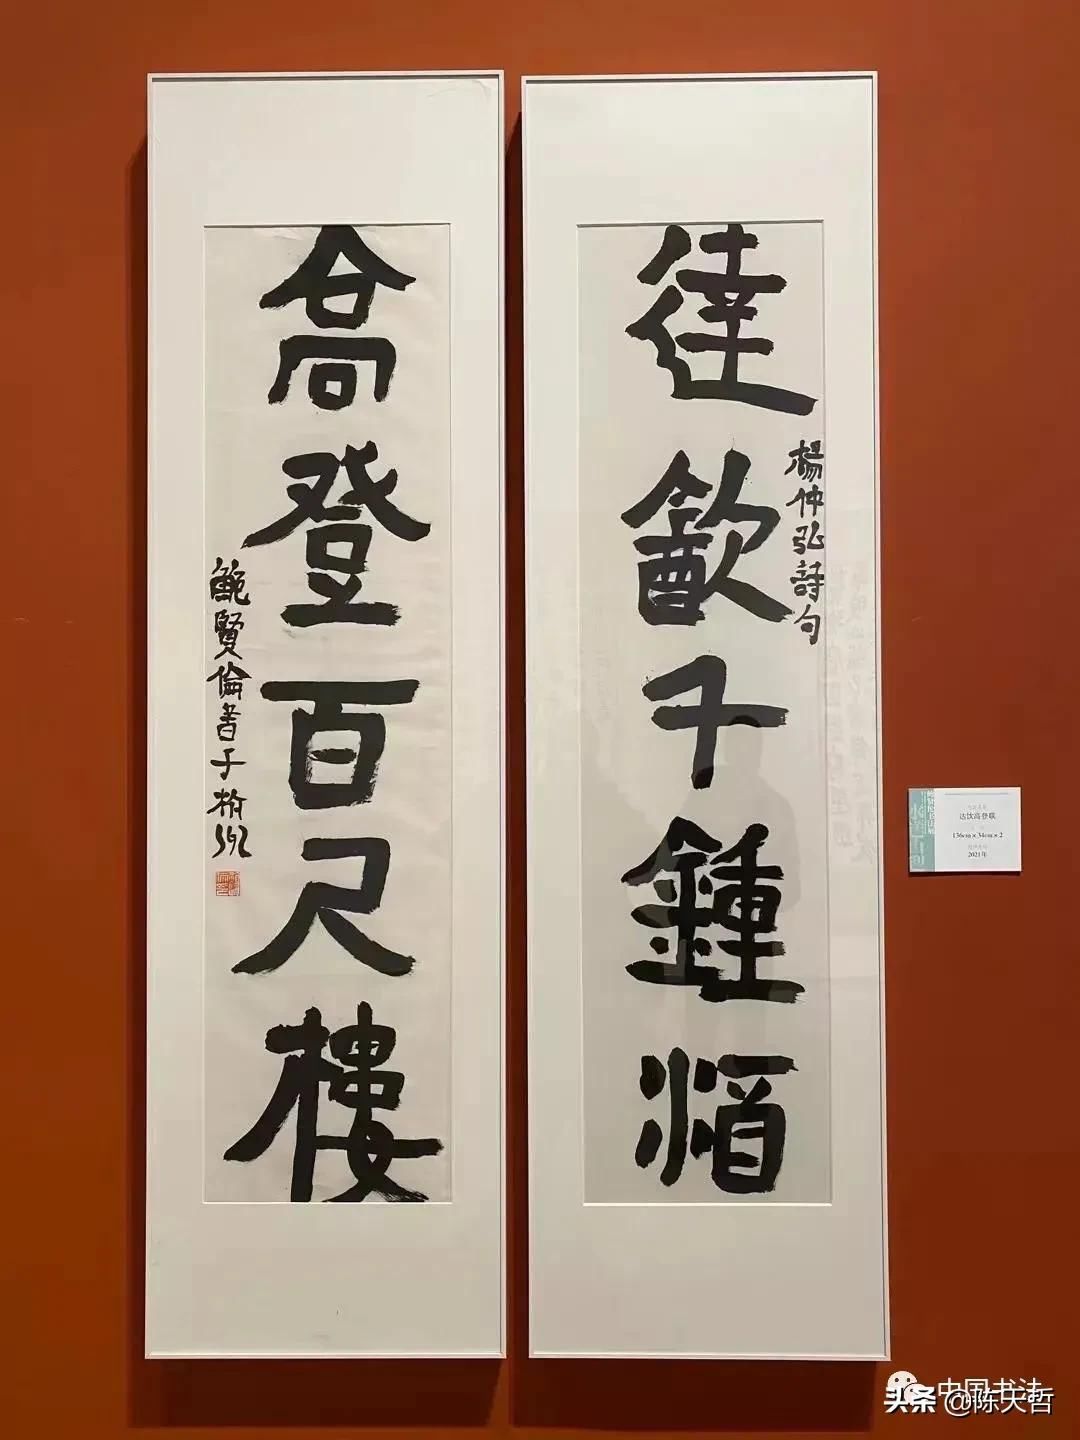 達飲千鍾酒
楊仲弘詩句
高登百尺樓
鮑賢倫書于
达饮高登联
136cm×34cm×2
2021年
鲍贤伦书法展
中国书法
头条 @陈天哲